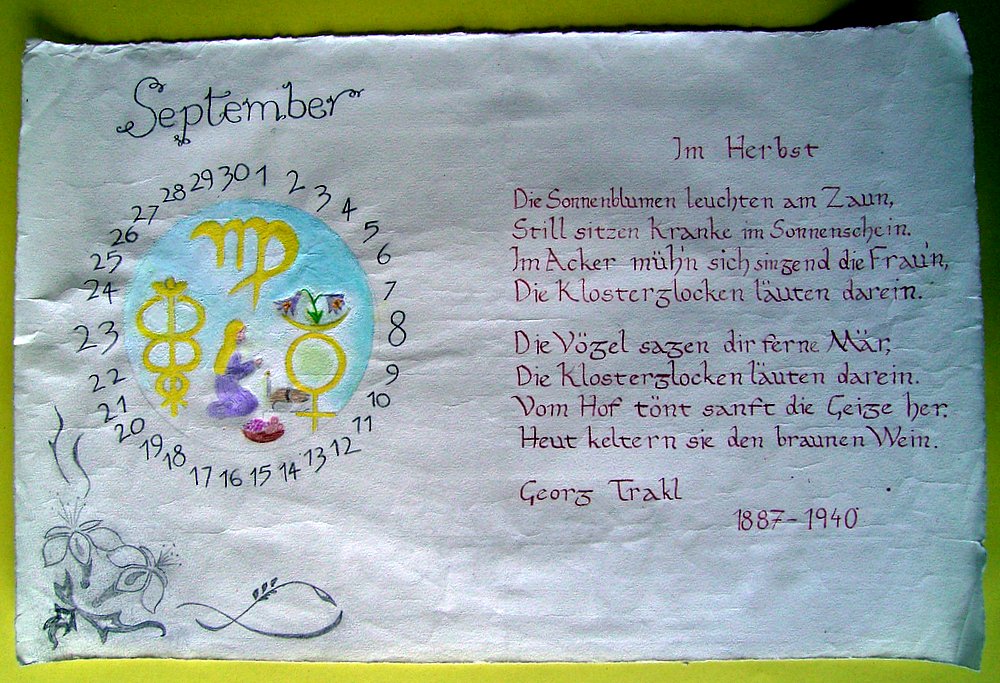 September
1 2 3 4 5 6 7 8 9 10 11 12 13 14 15 16 17 18 19 20 21 22 23 24 25 26 27 28 29 30
Im Herbst
Die Sonnenblumen leuchten am Zaun,
Still sitzen Kranke im Sonnenschein.
Im Acker müh'n sich singend die Frau'n,
Die Klosterglocken läuten darein.
Die Vögel sagen dir ferne Mär,
Die Klosterglocken läuten darein.
Vom Hof tönt sanft die Geige her.
Heut keltern sie den braunen Wein.
Georg Trakl
1887-1940